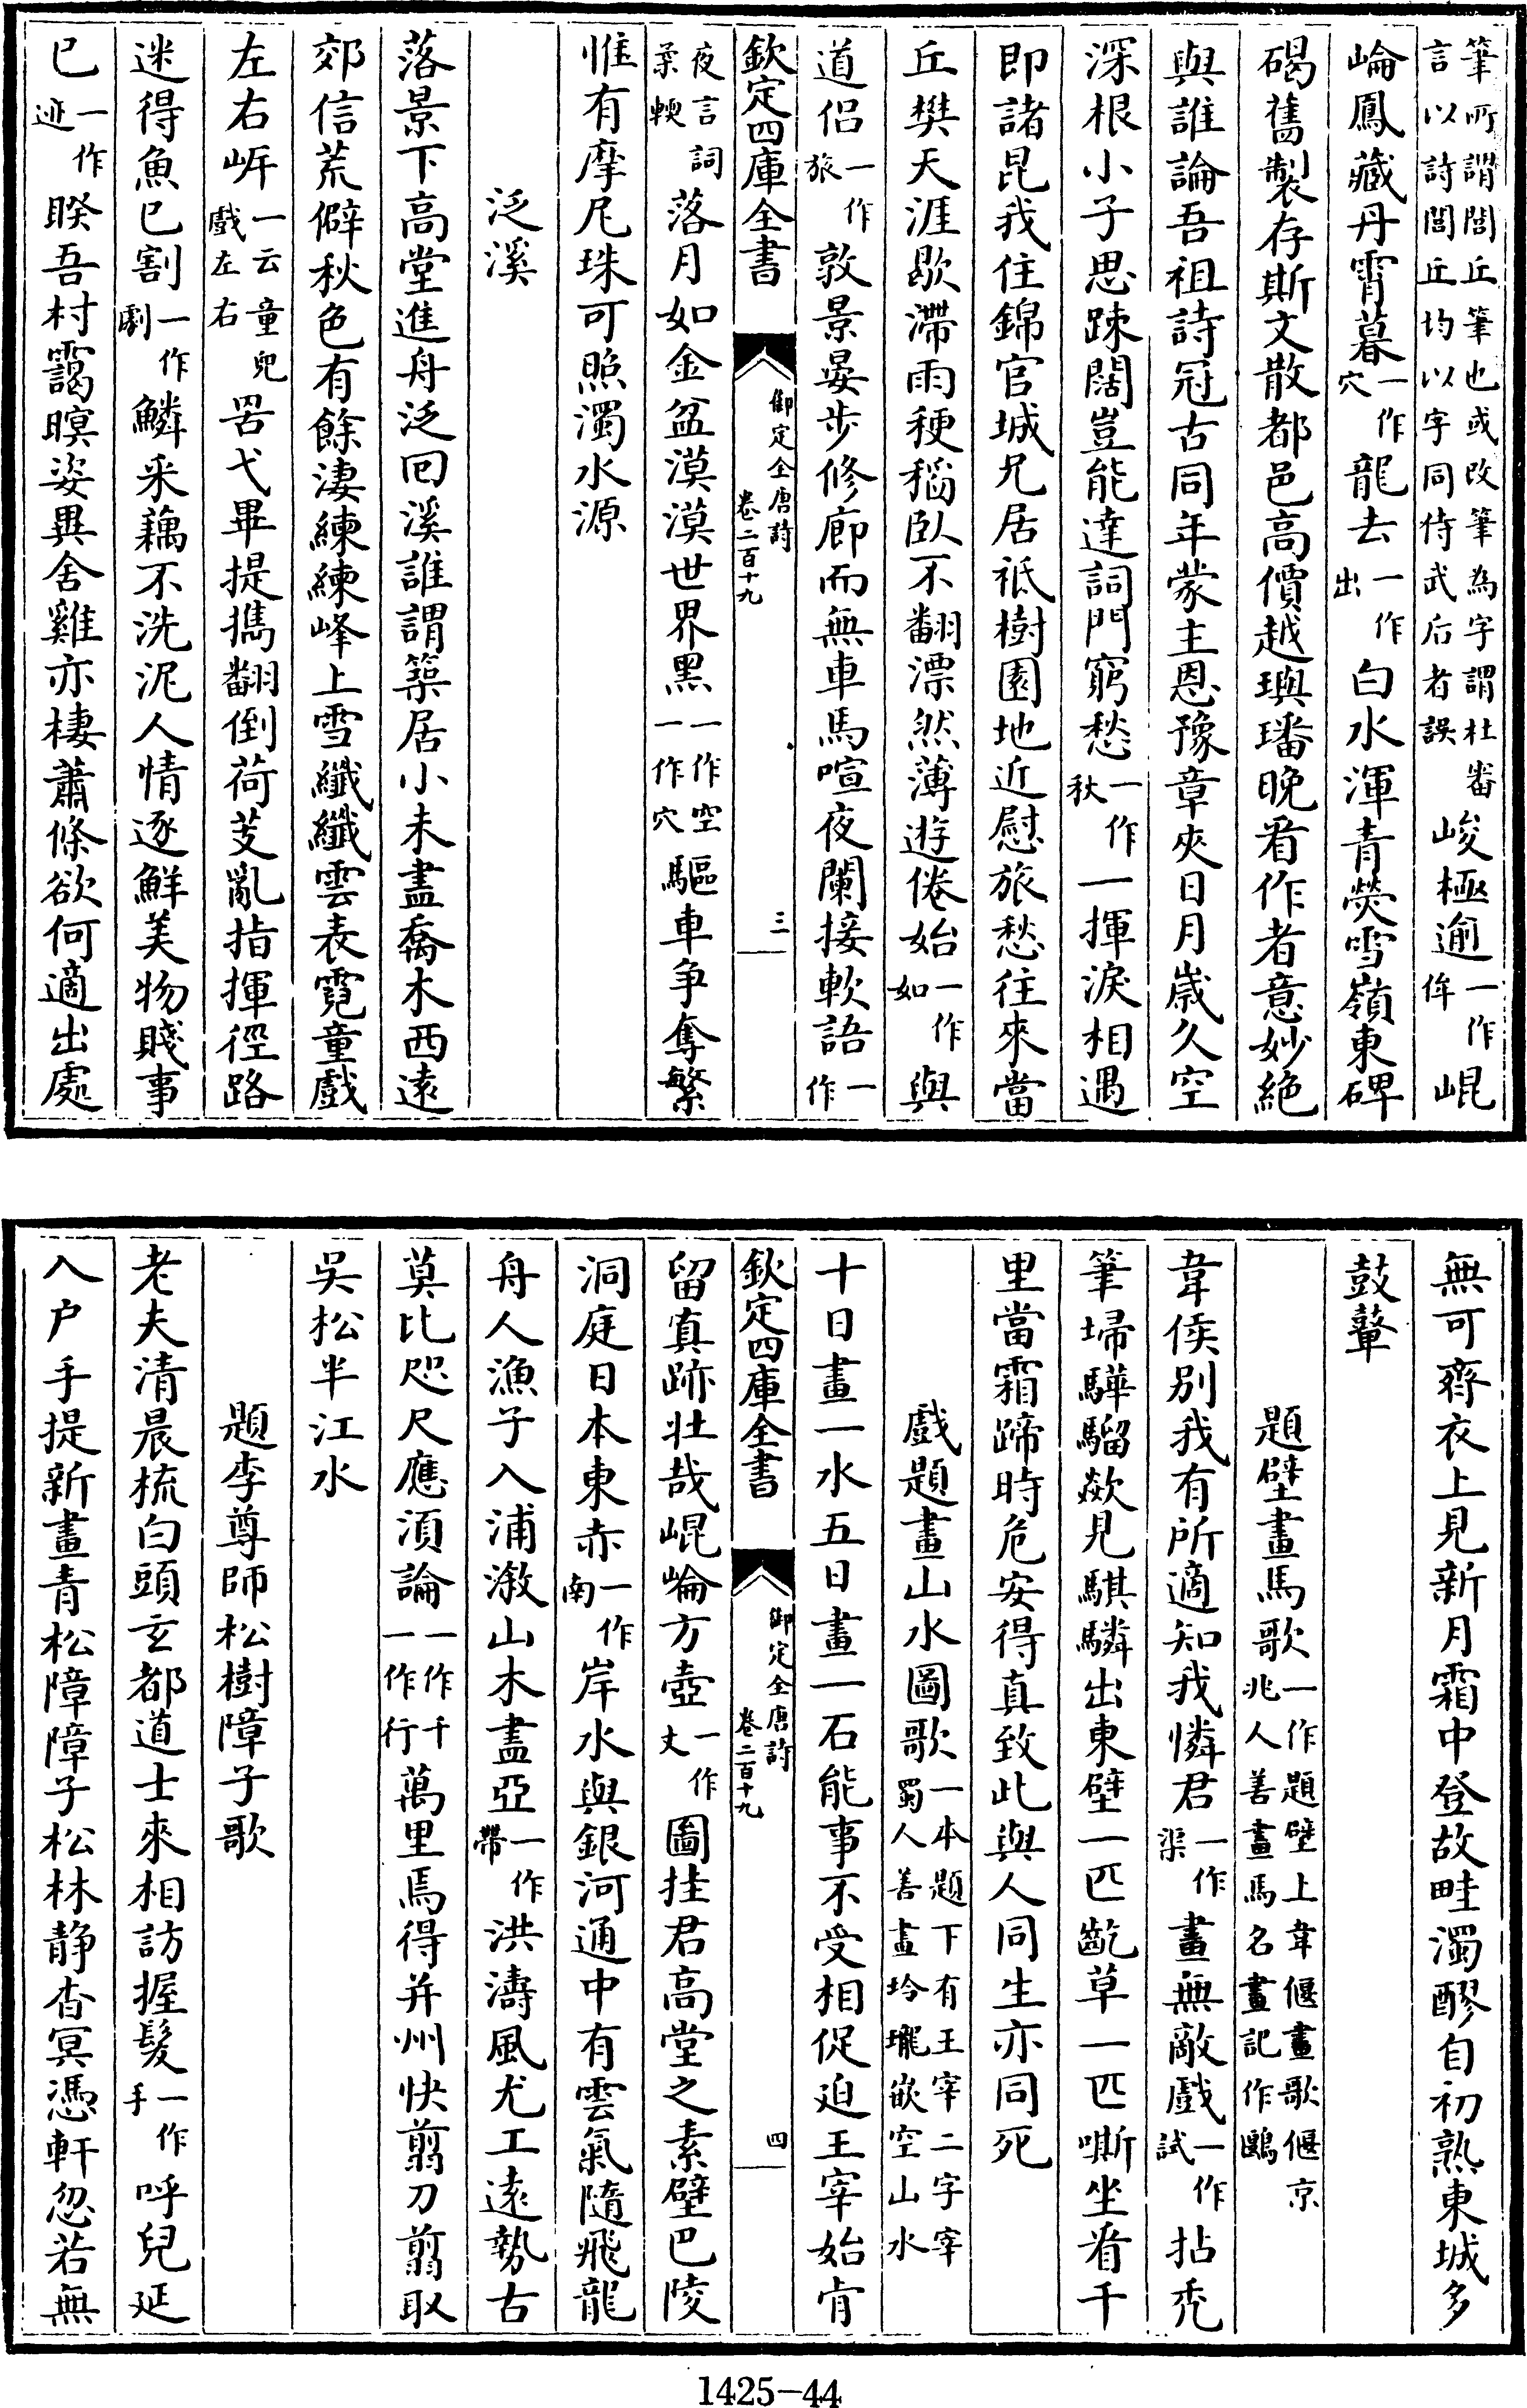 筆所謂閭丘筆也或改筆為字謂杜審言以詩閭丘均以字同侍武后者誤峻極逾一作侔崐
崘鳳藏丹霄暮一作穴龍去一作出白水渾青熒雪嶺東碑
碣舊製存斯文散都邑高價越璵璠晚看作者意妙絶
與誰論吾祖詩冠古同年蒙主恩豫章夾日月歲久空
深根小子思踈闊豈能達詞門窮愁一作秋一揮淚相遇
即諸昆我住錦官城兄居祇樹園地近慰旅愁往來當
丘樊天涯歇滯雨稉稻臥不翻漂然薄遊倦始一作如與
道侣一作旅敦景晏步修廊而無車馬喧夜闌接軟語一作
欽定四庫全書 御定全唐詩卷二百十九 三
夜言詞柔輭落月如金盆漠漠世界黑一作空一作穴驅車争奪繁
惟有摩尼珠可照濁水源
泛溪
落景下高堂進舟泛回溪誰謂築居小未盡喬木西遠
郊信荒僻秋色有餘淒練練峰上雪纖纖雲表霓童戲
左右岍一云童兒戲左右罟弋畢提擕翻倒荷芰亂指揮徑路
迷得魚已割一作劇鱗采藕不洗泥人情逐鮮美物賤事
已一作迹睽吾村靄暝姿異舍雞亦棲蕭條欲何適出處
無可齊衣上見新月霜中登故畦濁醪自初熟東城多
鼓鼙
題壁畫馬歌一作題壁上韋偃畫歌偃京兆人善畫馬名畫記作鷗
韋侯别我有所適知我憐君一作渠畫無敵戲一作試拈秃
筆埽驊騮歘見騏驎出東壁一匹齕草一匹嘶坐看千
里當霜蹄時危安得真致此與人同生亦同死
戲題畫山水圖歌一本題下有王宰二字宰蜀人善畫坽瓏嵌空山水
十日畫一水五日畫一石能事不受相促迫王宰始肯
欽定四庫全書 御定全唐詩卷二百十九 四
留真跡壯哉崐崘方壺一作丈圖挂君高堂之素壁巴陵
洞庭日本東赤一作南岸水與銀河通中有雲氣隨飛龍
舟人漁子入浦漵山木盡亞一作帶洪濤風尤工遠勢古
莫比咫尺應須論一作千一作行萬里焉得并州快翦刀翦取
吳松半江水
題李尊師松樹障子歌
老夫清晨梳白頭玄都道士來相訪握髮一作手呼兒延
入户手提新畫青松障障子松林静杳冥憑軒忽若無
1425-44